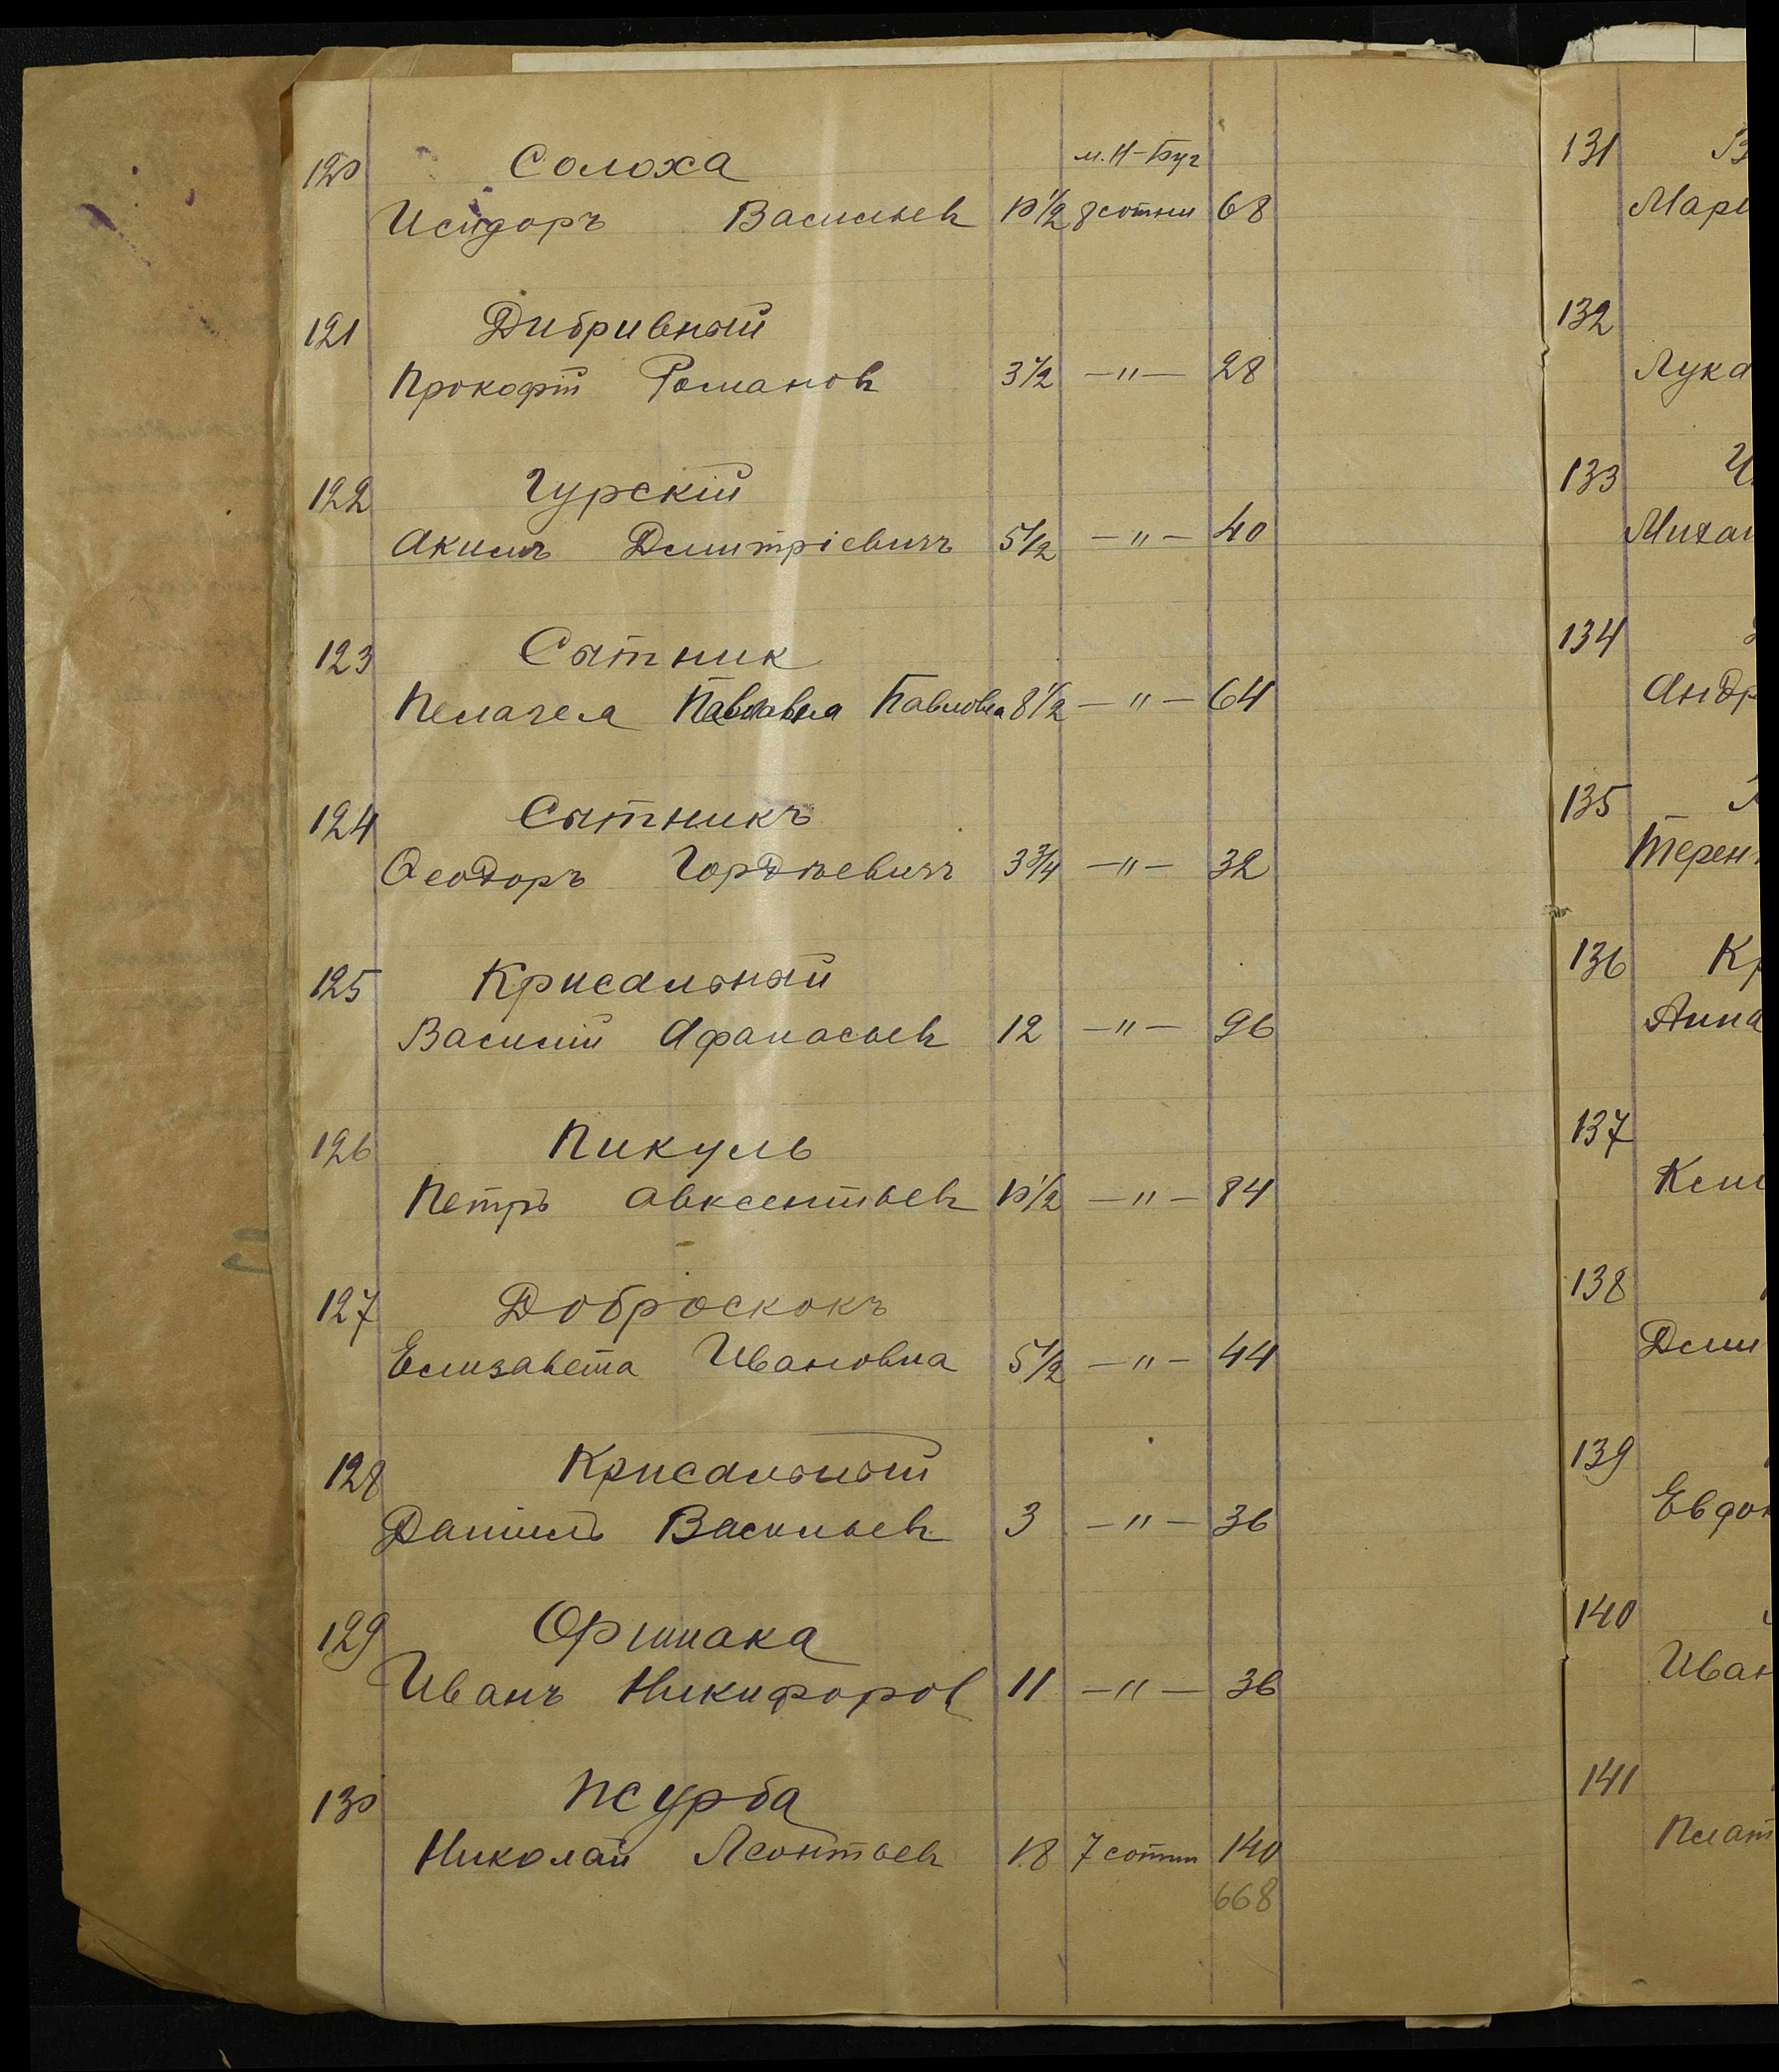 м. Н-Буг
120 Солоха
Исидоръ Васильев 10 1/2 8 сотни 68
121 Дибривный
Прокофій Романов 3 1/2 —"— 28
122 Гурскій
Акимъ Дмитріевичъ 5 1/2 —"— 40
123 Сытник
Пелагея Павловна Павловна 8 1/2 —"— 64
124 Сытникъ
Ѳеодоръ Гордѣевичъ 3 3/4 —"— 32
125 Крисальный
Василий Афанасьев 12 —"— 96
126 Пикуль
Петръ Авксентьев 10 1/2 —"— 84
127 Доброскокъ
Елизавета Ивановна 5 1/2 —"— 44
128 Крисальный
Даниилъ Васильев 3 —"— 36
129 Оришака
Иванъ Никифоров 11 —"— 36
130 Журба
Николай Леонтьев 18 7 сотни 140
668
131 В
Мари
132
Лука
133
Михаи
134
Андр
135
Терен
136 Кр
Анна
137
138
Дми
139
Евдок
140
Иван
141
Плат